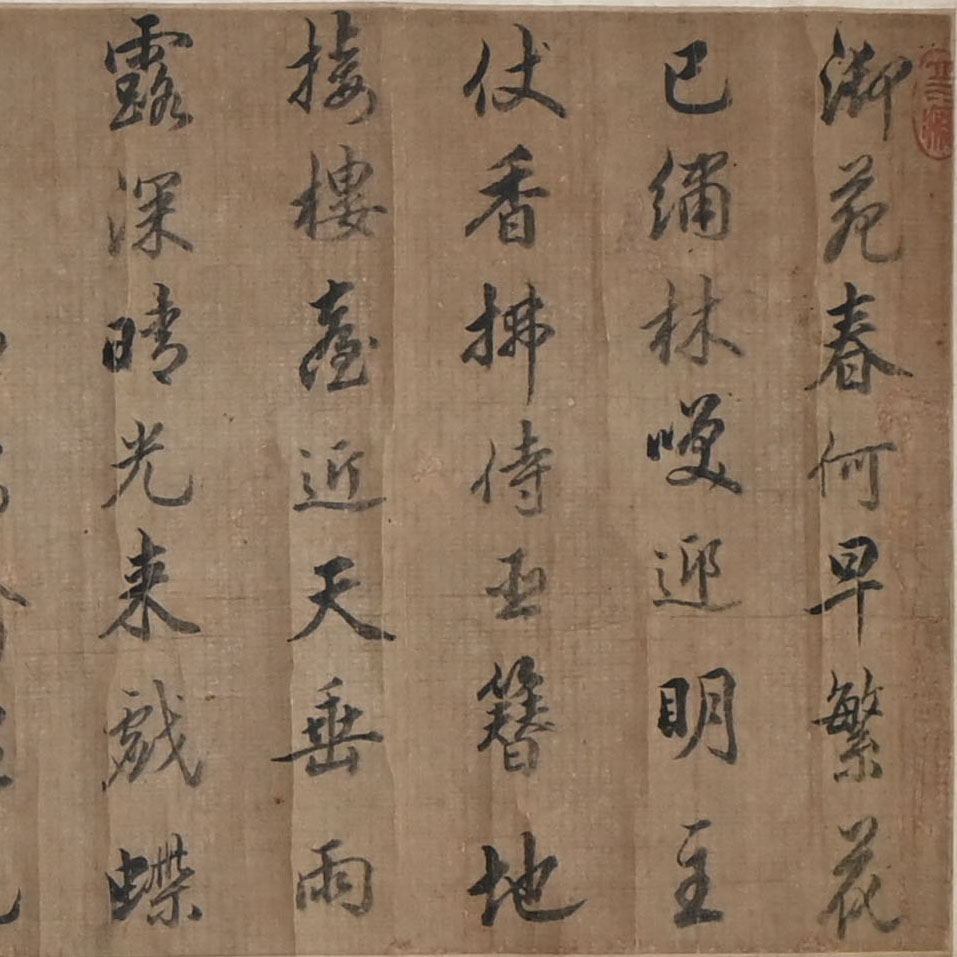 御苑春何早繁花
已繡林咲迎明主
仗香拂侍臣簪地
接樓臺近天垂雨
露深晴光来戲蝶